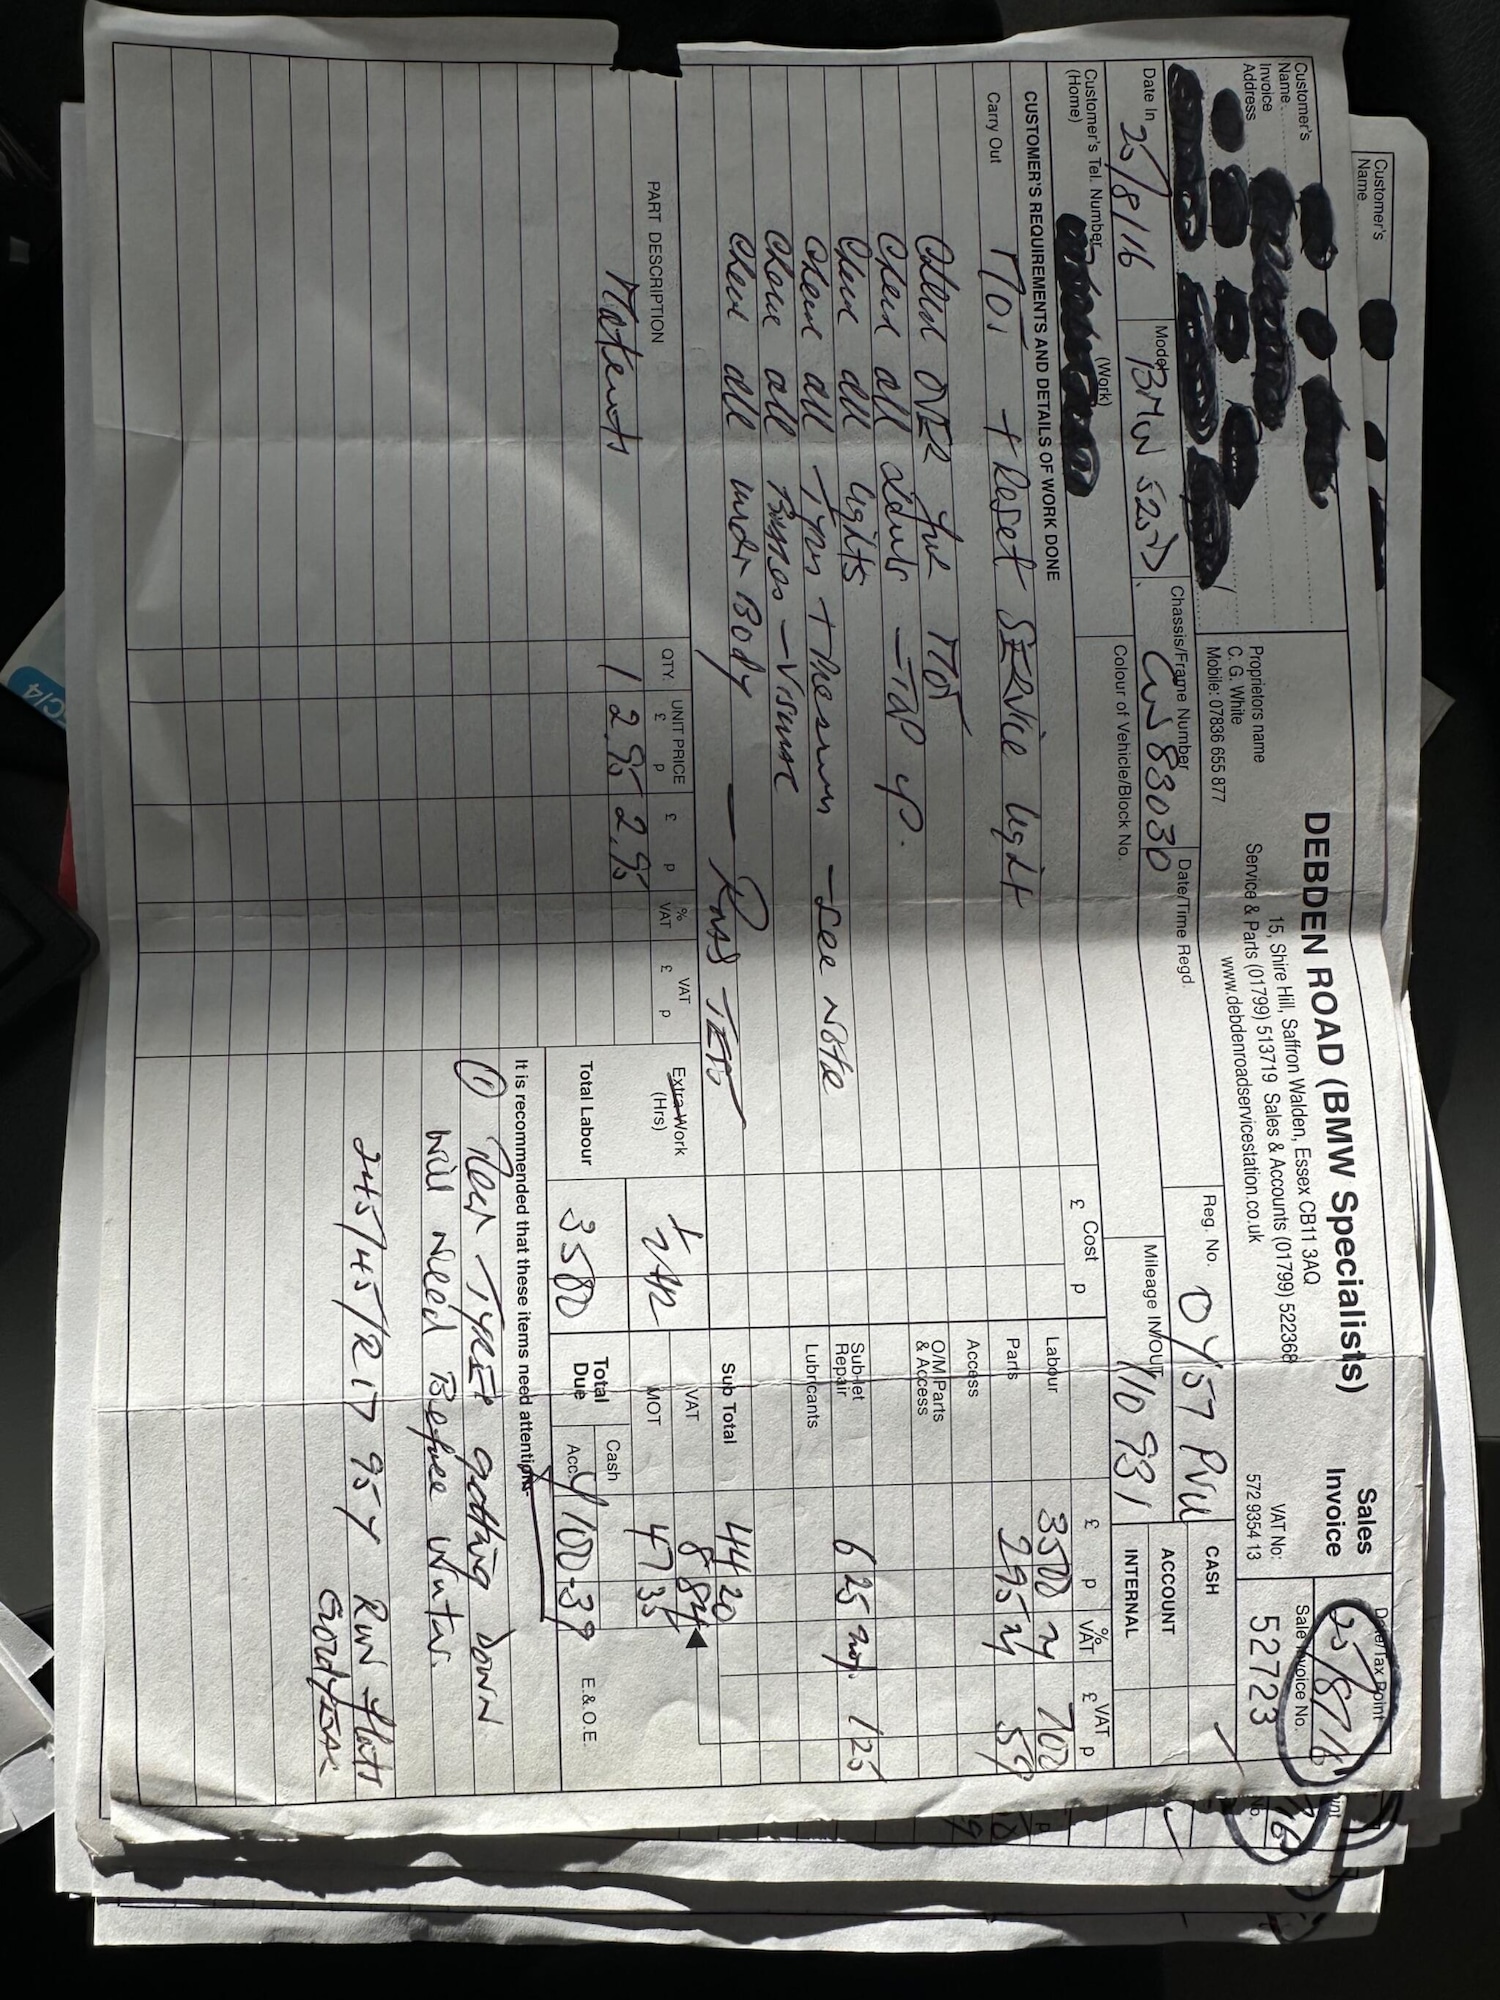 Customer's
Name
DEBDEN ROAD (BMW Specialists)
15, Shire Hill, Saffron Walden, Essex CB11 3AQ
Service & Parts (01799) 513719 Sales & Accounts (01799) 522368
www.debdenroadservicestation.co.uk
Sales
Invoice
VAT No:
572 9354 13
Date/Tax Point
25/8/16
Sale Invoice No.
52723
Customer's
Name
Invoice
Address
Proprietors name
C. G. White
Mobile: 07836 655 877
Date In 25/8/16
Model BMW 520D.
Chassis/Frame Number CW83030
Date/Time Regd.
Reg. No. OY57 PVU
CASH
ACCOUNT
INTERNAL
Customer's Tel. Number
(Home)
(Work)
Colour of Vehicle/Block No.
Mileage IN/OUT 110 931
CUSTOMER'S REQUIREMENTS AND DETAILS OF WORK DONE
Cost
£ p
£ p %VAT £ VAT p
Carry Out MOT + Reset SERVice light
Labour 35 00 7 00
Parts 2 95 59
Check OVER for MOT
Access
Check all levels - TOP up.
O/M Parts
& Access
Check all lights
Sub-let
Repair 6 25 1 25
Check all Tyres + Pressures - See Note
Lubricants
Check all Brakes - Visual
Check all under Body - Pass TEST
Sub Total 44 20
VAT 8 84
MOT 47 35
PART DESCRIPTION
QTY.
UNIT PRICE
£ p
£ p
%
VAT
VAT
£ p
Extra Work
(Hrs)
Materials 1 2.95 2.95
Total Labour 35 00
Total
Due
Cash
Acc.
100-39
E.& O.E.
It is recommended that these items need attention
① Rear TYRES getting DOWN
will need Before winter.
245/45/R17 95Y Run flats
GOODYEAR